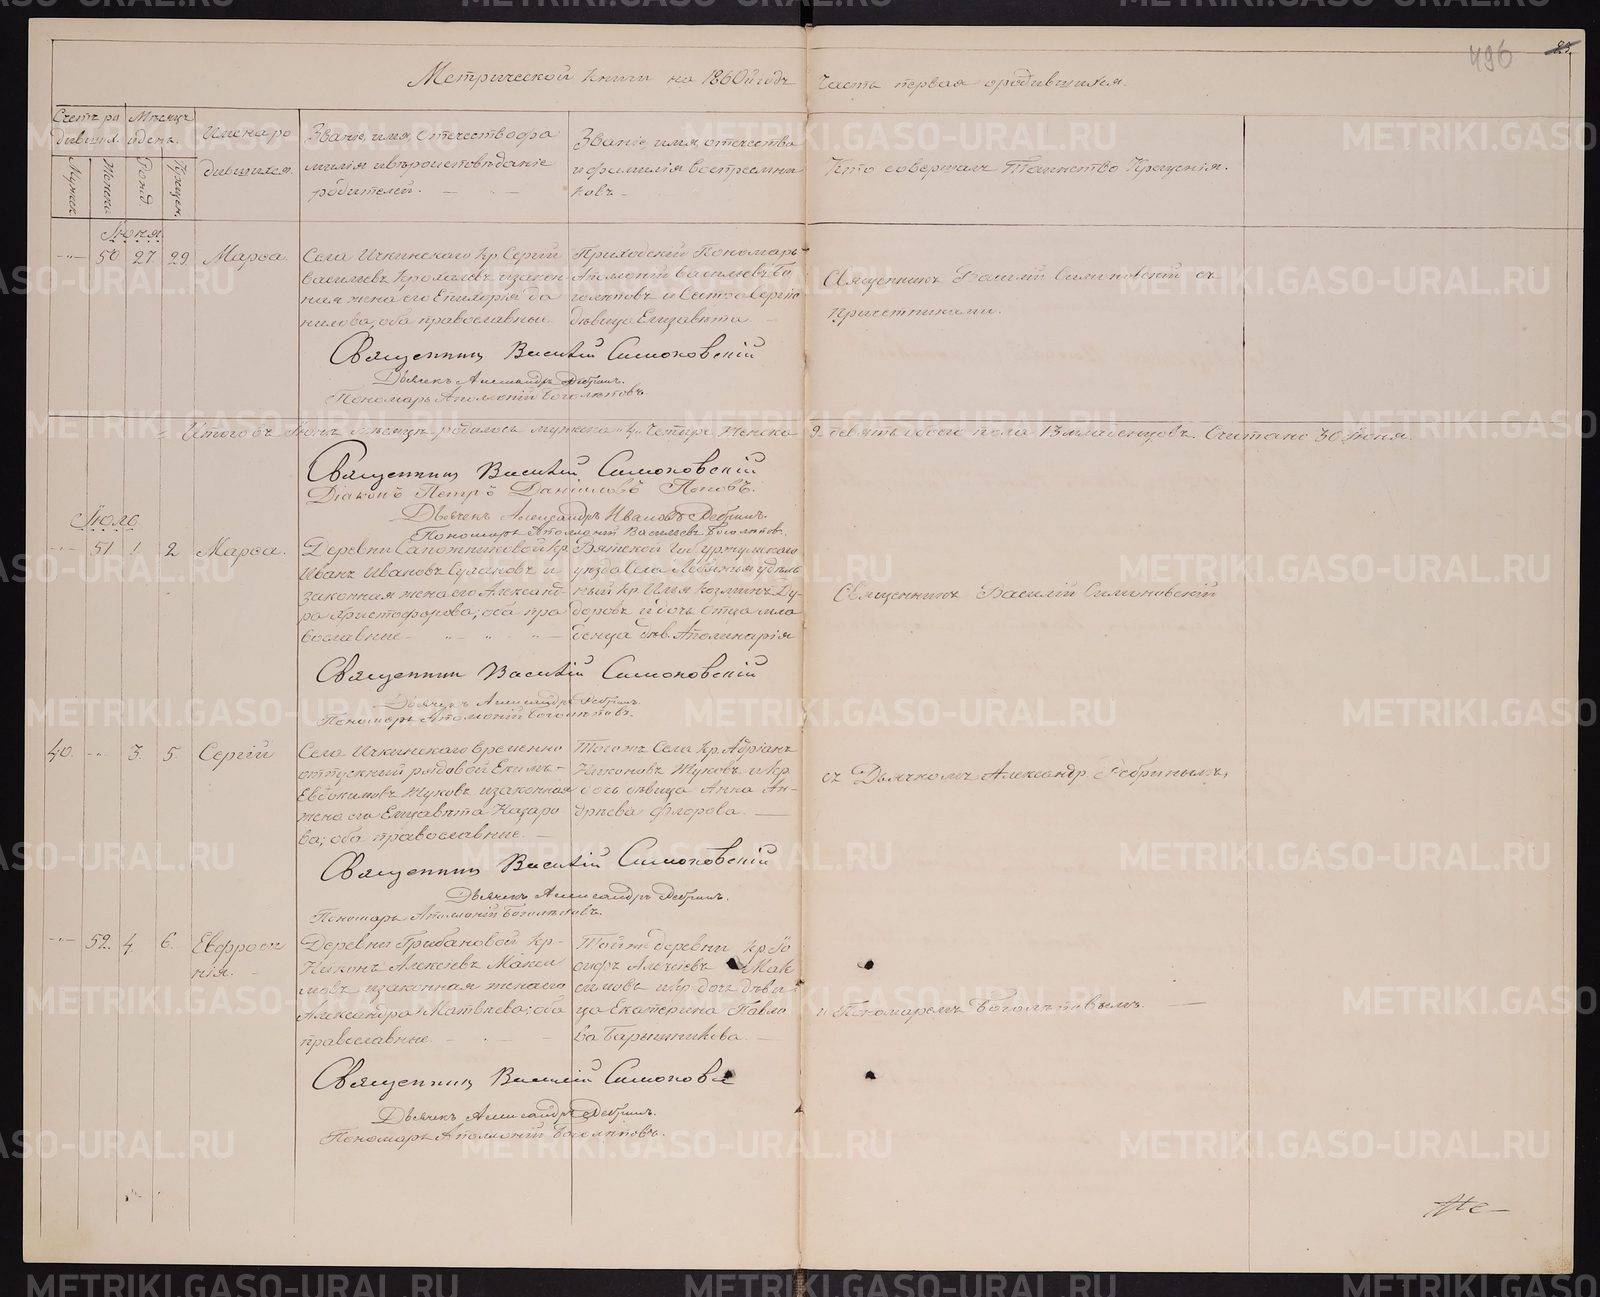 496
Метрической Книги на 1860й годъ Часть первая о родившихся.
Счетъ ро
дивших.
Мѣсяцъ
и день.
Имена ро
дившихся.
Званіе, имя, отчество и фа
милія и вѣроисповѣданіе
родителей.
Званіе, имя, отчество
и фамилія воспріемни
ковъ
Кто совершалъ Таинство Крещенія.
Мужск.
Женска
Рожд.
Крещен.
Іюня
50 27 29 Марѳа.
Села Ичкинскаго Кр. Сергій
Васильевъ и закон
ная жена его Епихарія Да
нилова, оба православные.
Приходскій Пономарь
Аполоній Васильевъ Бо
голѣповъ и
дѣвица Елизавета
Священникъ Василій Симоновскій съ
Причетниками.
Священникъ Василій Симоновскій
Дьячекъ Александръ Ребринъ.
Пономарь Аполлоній Боголѣповъ.
Итого въ Іюнѣ мѣсяцѣ родилось мужска 4 четыре женска 9 девять обоего пола 13 младенцовъ. Считано 30 Іюня.
Священникъ Василій Симоновскій
Діаконъ Петръ Даніиловъ Поповъ.
Дьячекъ Александръ Ивановъ Ребринъ.
Пономарь Аполлоній Васильевъ Боголѣповъ.
Іюль
51 1 2 Марѳа.
Деревни Сапожниковой Кр.
Иванъ Ивановъ и
законная жена его Александ
ра Христофорова; оба пра
вославные
Вятской Губ. Уржумскаго
уѣзда Села Лебяжья удѣль
ный Кр. Илья Козминъ Ду-
доровъ и дочь отца мла
денца дѣв. Аполинарія
Священникъ Василій Симоновскій
Священникъ Василій Симоновскій
Дьячекъ Александръ Ребринъ.
Пономарь Аполлоній Боголѣповъ.
40. 3. 5. Сергій
Села Ичкинскаго временно
отпускный рядовой Екимъ
Евдокимовъ Жуковъ и законная
жена его Елизавета Назаро
ва; оба православные.
Тогожъ Села Кр. Адріанъ
Никоновъ Жуковъ и Кр.
дочь дѣвица Анна Ан-
дреева Флорова.
съ Дьячкомъ Александр. Ребринымъ,
Священникъ Василій Симоновскій
Дьячекъ Александръ Ребринъ.
Пономарь Аполлоній Боголѣповъ.
52. 4. 6. Евфроси
нія.
Деревни Грибановой Кр.
Никонъ Алексіевъ Макси
мовъ и законная жена его
Александра Матвѣева; оба
православные.
Тойже деревни Кр. Іо
сифъ Алексіевъ Мак
симовъ и Кр. дочь дѣви
ца Екатерина Павло
ва Барышникова.
и Пономаремъ Боголѣповымъ.
Священникъ Василій Симоновс
Дьячекъ Александръ Ребринъ.
Пономарь Аполлоній Боголѣповъ.
METRIKI.GASO-URAL.RU